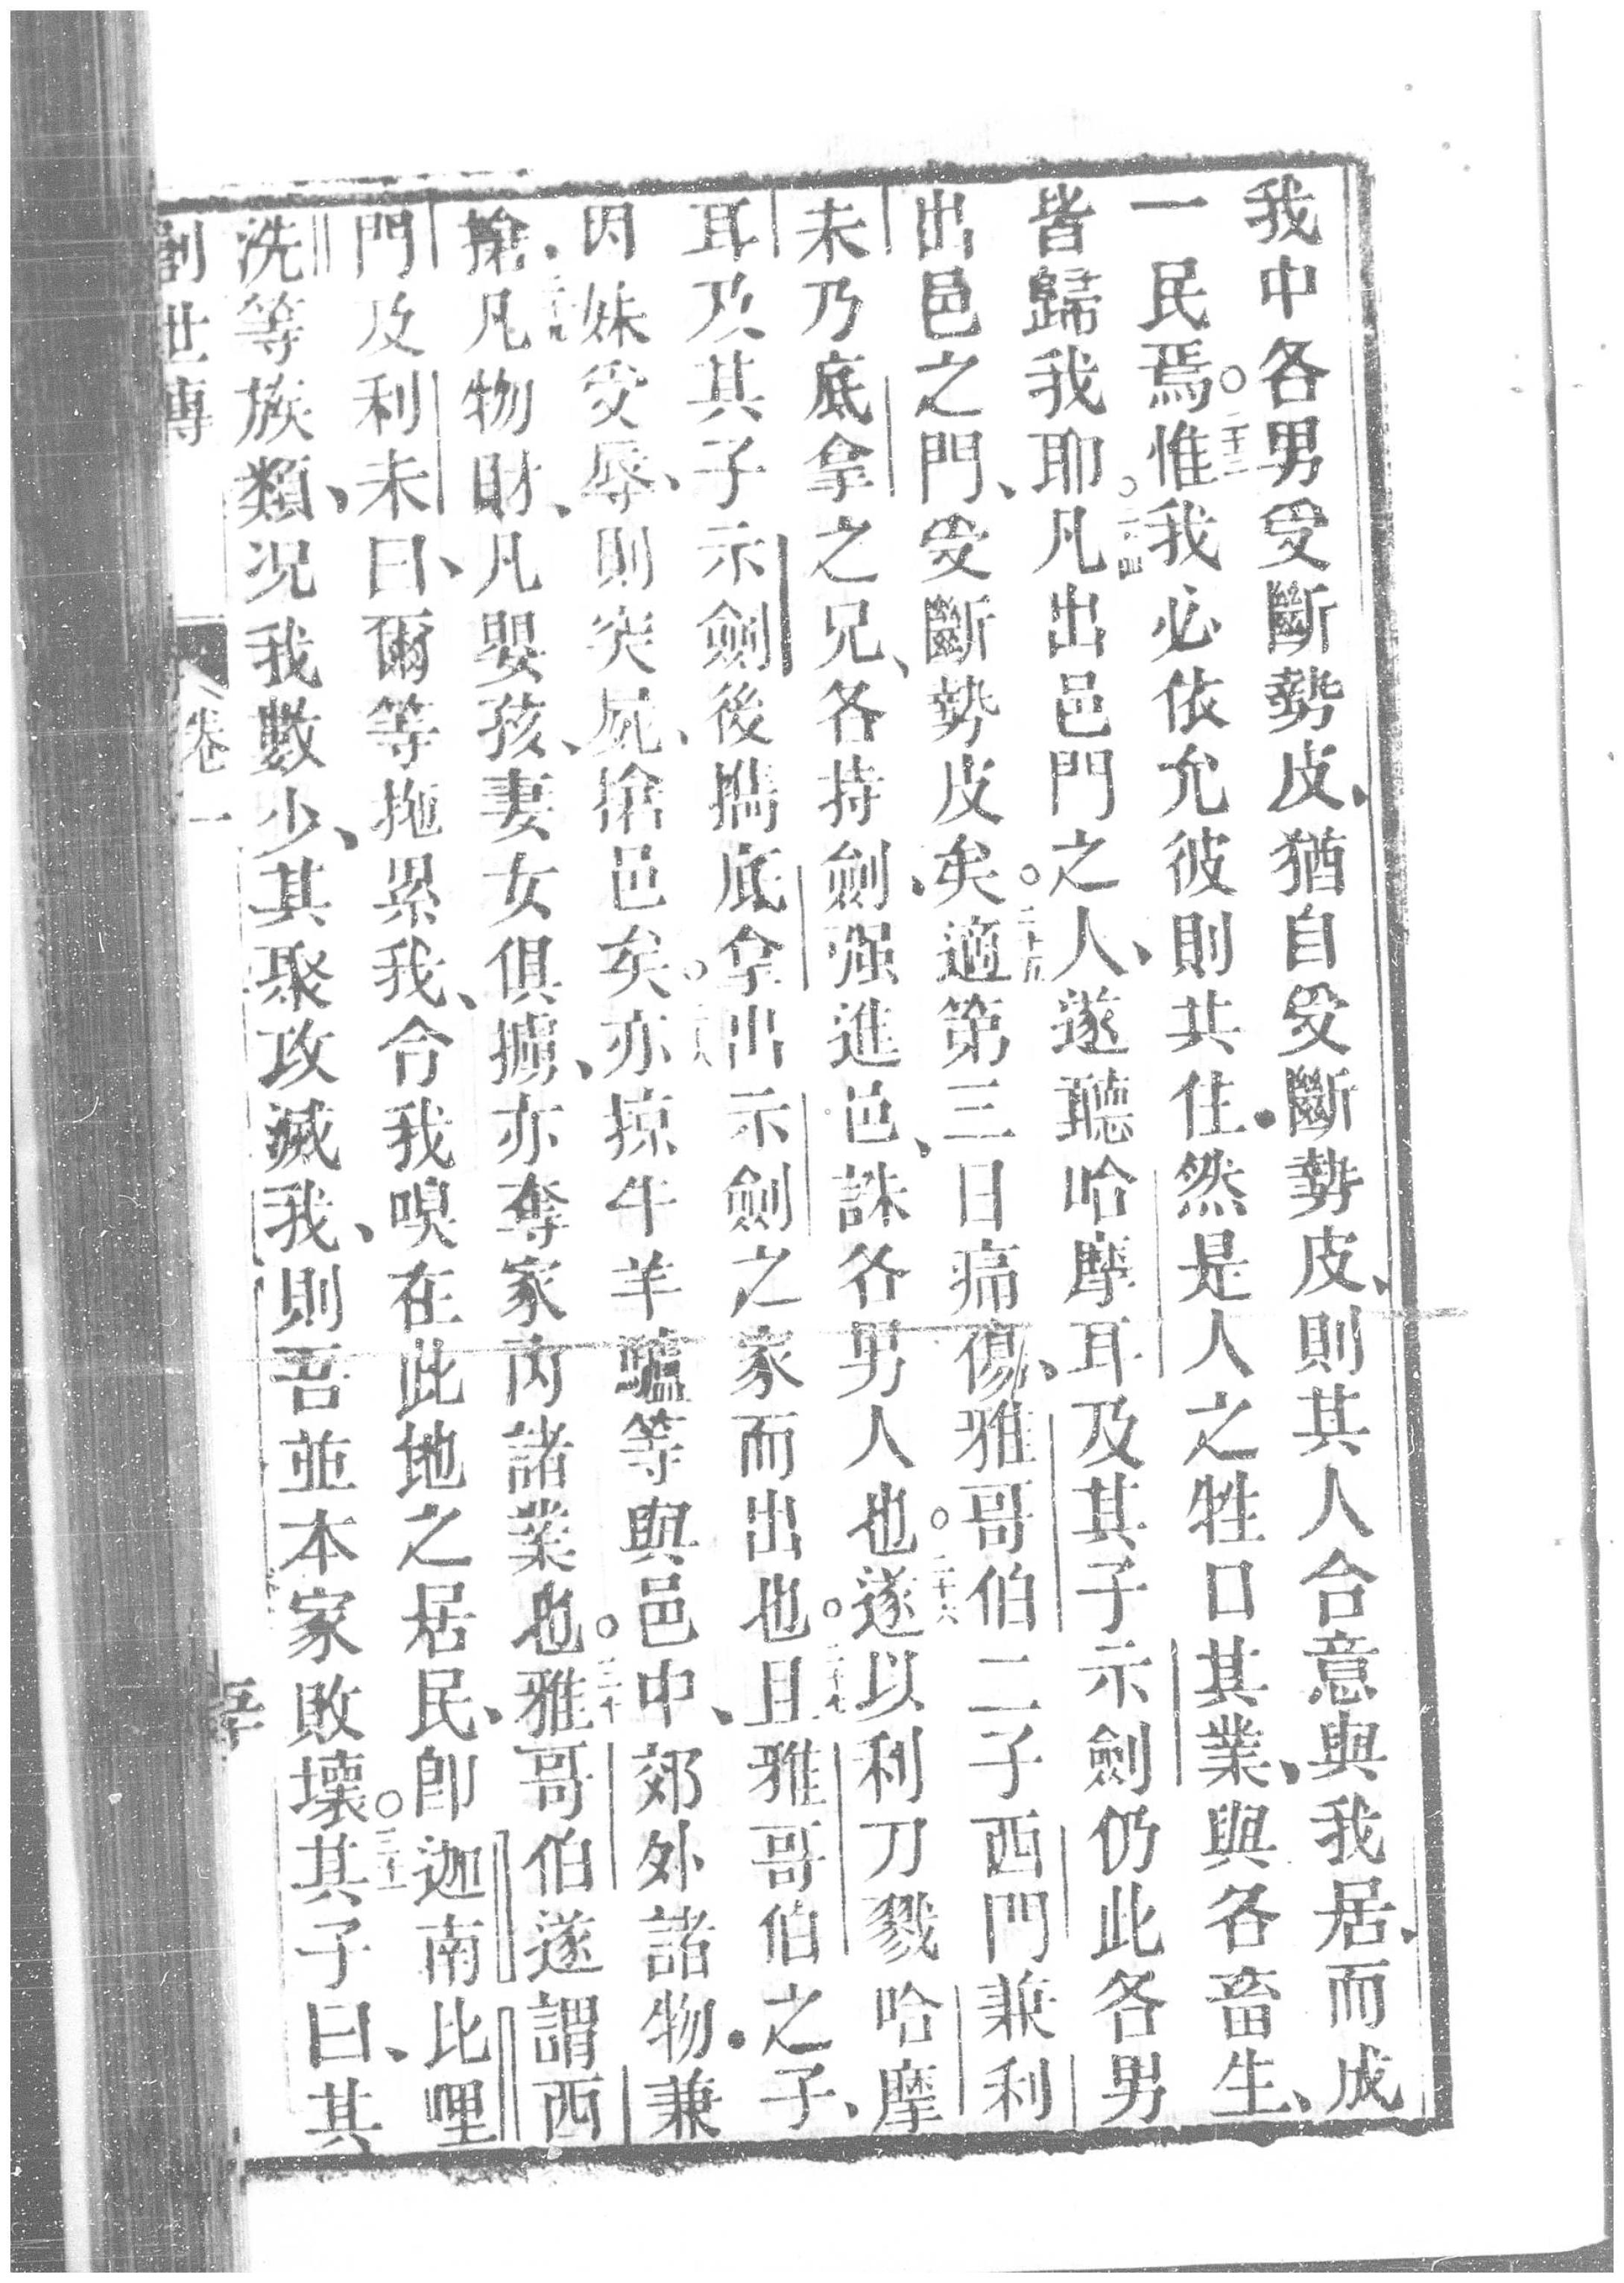 我中各男受斷勢皮、猶自受斷勢皮、則其人合意與我居、而成
一民焉。二十三惟我必依允彼則共住・然是人之牲口其業、與各畜生、
皆歸我耶。二十四凡出邑門之人、遂聽哈摩耳及其子示劍仍此各男
出邑之門、受斷勢皮矣。二十五適第三日痛傷、雅哥伯二子西門兼利
未乃底拿之兄、各持劍、强進邑、誅各男人也。二十六遂以利刀戮哈摩
耳及其子示劍後攜底拿出示劍之家而出也。二十七且雅哥伯之子、
因妹受辱、則突屍、搶邑矣。二十八亦掠牛羊驢等與邑中、郊外諸物・兼
搶、二十九凡物財、凡嬰孩、妻女俱擄、亦奪家內諸業也。三十雅哥伯遂謂西
門及利未曰、爾等拖累我、令我嗅在此地之居民、即迦南比哩
洗等族類、况我數少、其聚攻滅我、則吾並本家敗壞。三十一其子曰、其
創世傳 卷一